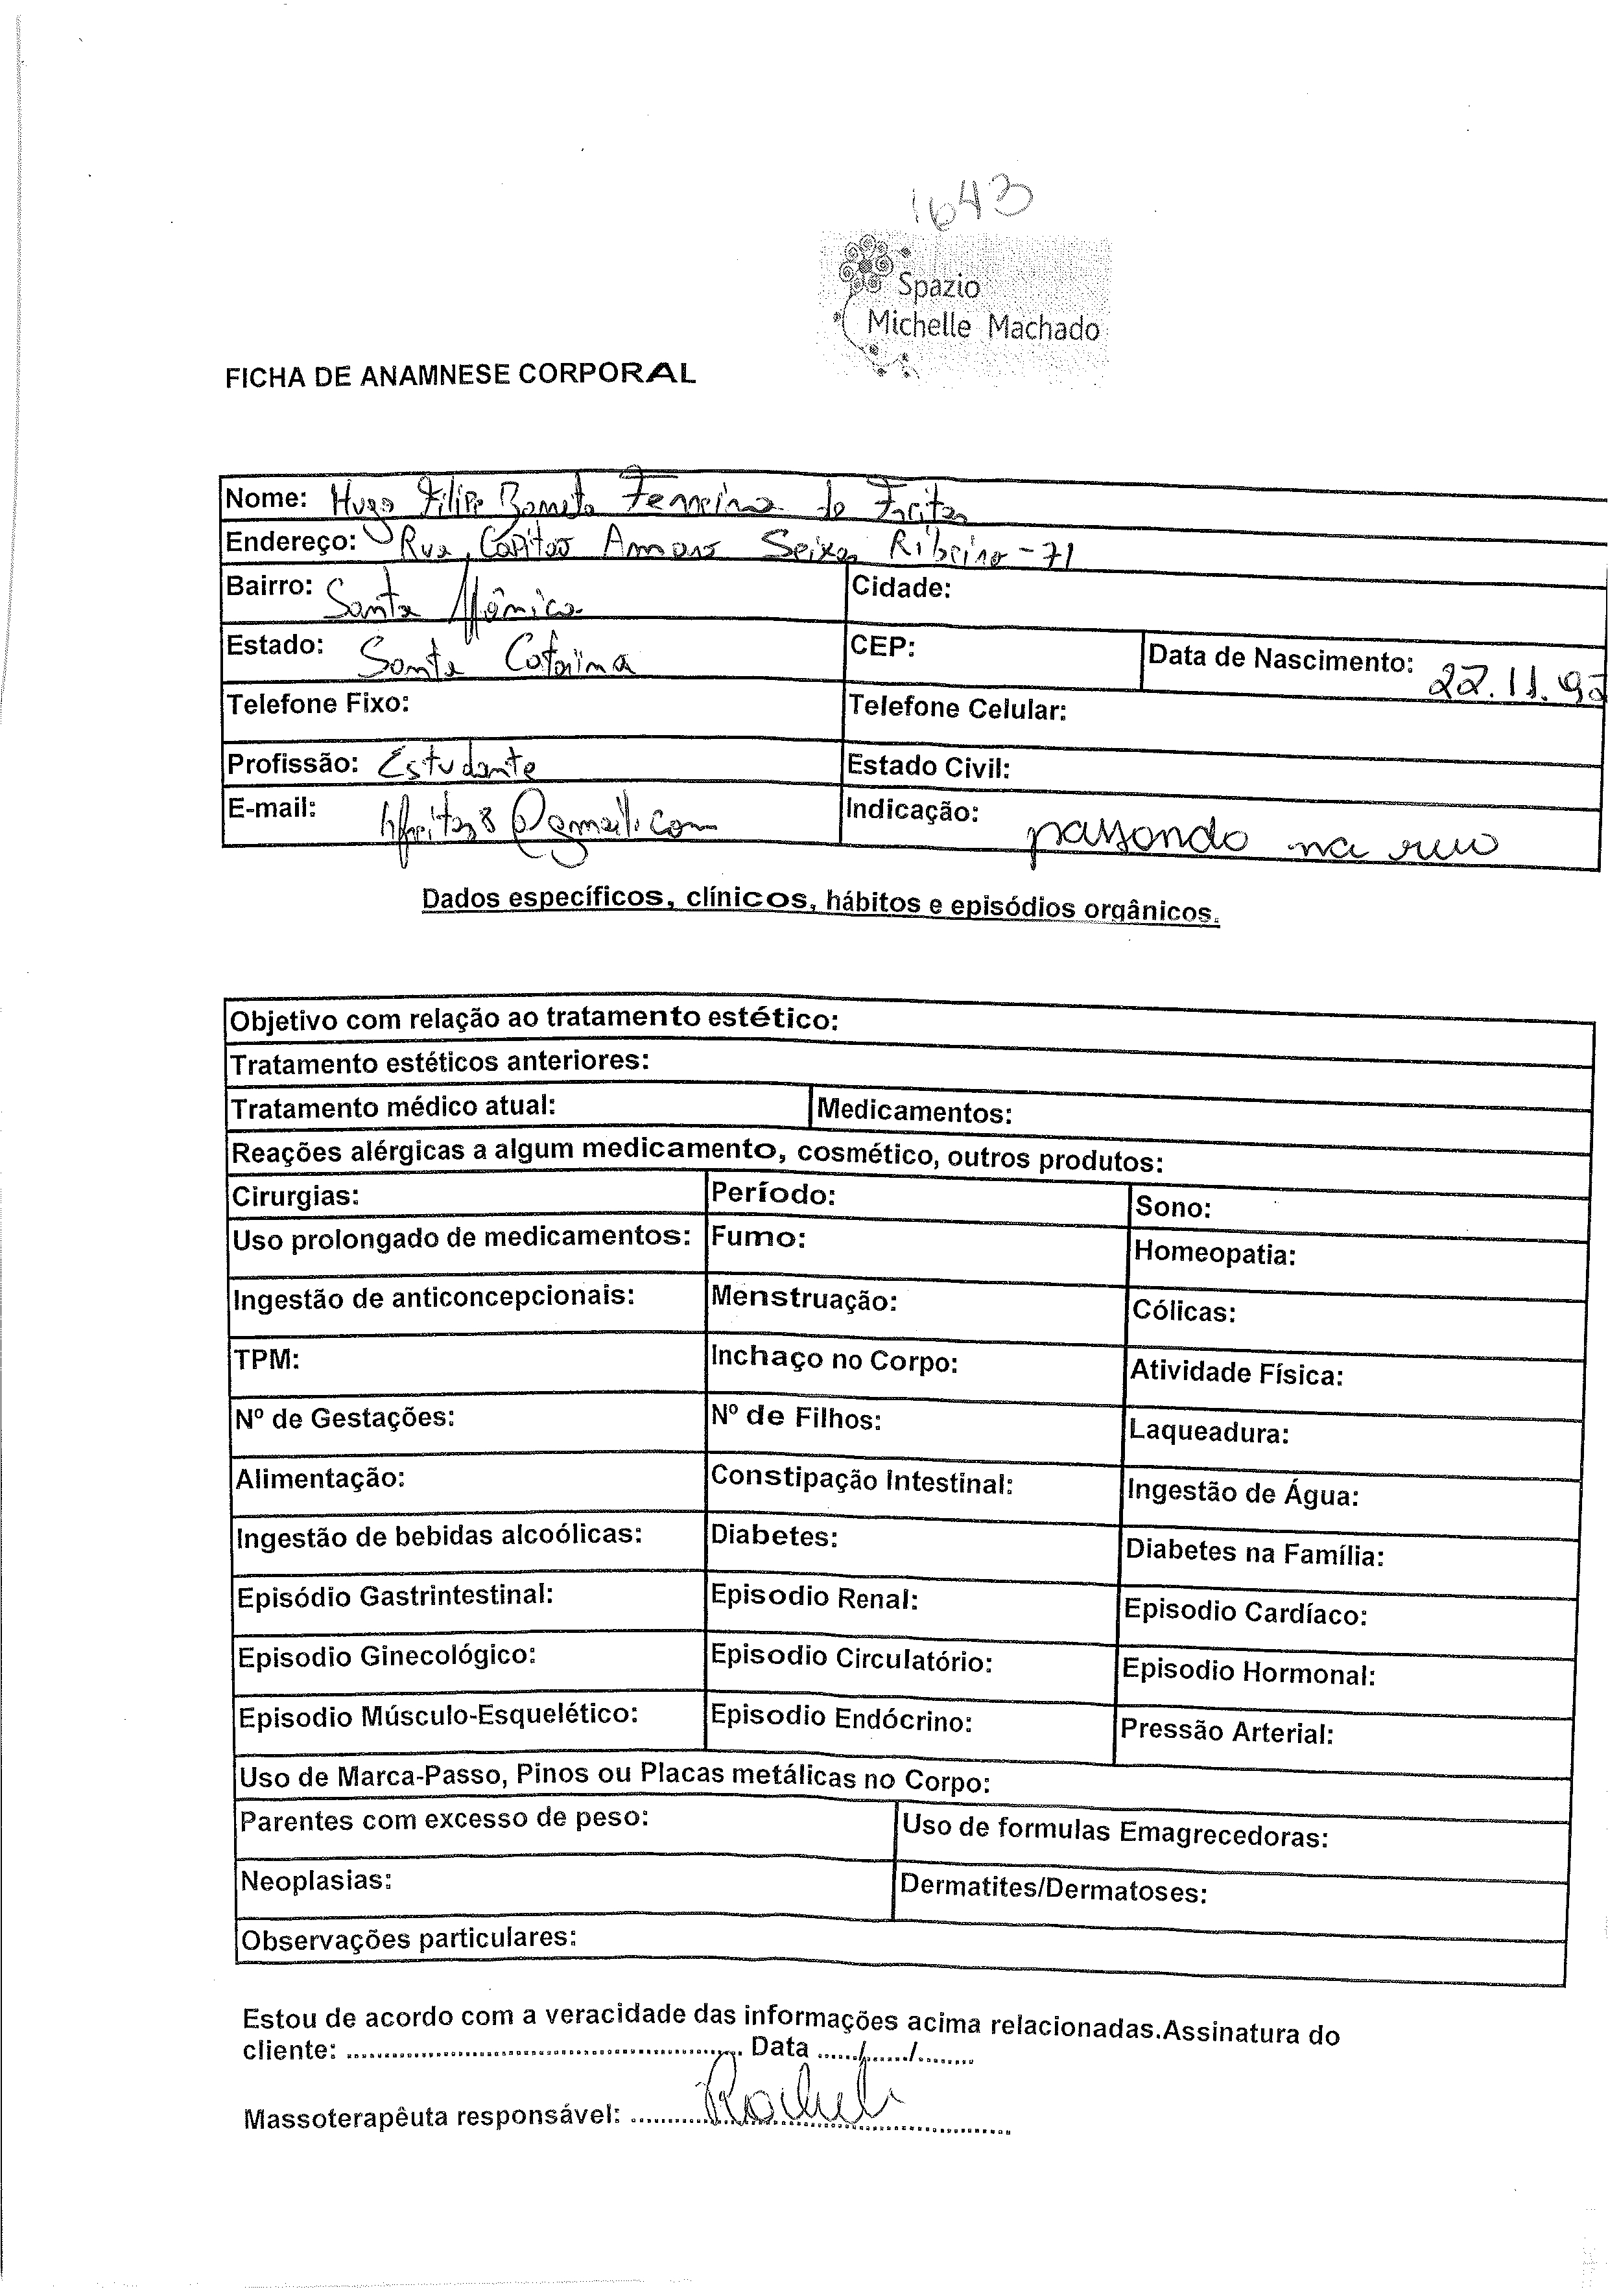 1643
Spazio
Michelle Machado
FICHA DE ANAMNESE CORPORAL
Nome: Hugo Filipe Ferreira de Freitas
Endereço: Rua Capitão Amaro Seixas Ribeiro - 71
Bairro: Santa Mônica Cidade:
Estado: Santa Catarina CEP: Data de Nascimento: 22.11.9
Telefone Fixo: Telefone Celular:
Profissão: Estudante Estado Civil:
E-mail: hfreitas8@gmail.com Indicação: passando na rua
Dados específicos, clínicos, hábitos e episódios orgânicos.
Objetivo com relação ao tratamento estético:
Tratamento estéticos anteriores:
Tratamento médico atual: Medicamentos:
Reações alérgicas a algum medicamento, cosmético, outros produtos:
Cirurgias: Período: Sono:
Uso prolongado de medicamentos: Fumo: Homeopatia:
Ingestão de anticoncepcionais: Menstruação: Cólicas:
TPM: Inchaço no Corpo: Atividade Física:
Nº de Gestações: Nº de Filhos: Laqueadura:
Alimentação: Constipação Intestinal: Ingestão de Água:
Ingestão de bebidas alcoólicas: Diabetes: Diabetes na Família:
Episódio Gastrintestinal: Episodio Renal: Episodio Cardíaco:
Episodio Ginecológico: Episodio Circulatório: Episodio Hormonal:
Episodio Músculo-Esquelético: Episodio Endócrino: Pressão Arterial:
Uso de Marca-Passo, Pinos ou Placas metálicas no Corpo:
Parentes com excesso de peso: Uso de formulas Emagrecedoras:
Neoplasias: Dermatites/Dermatoses:
Observações particulares:
Estou de acordo com a veracidade das informações acima relacionadas.Assinatura do
cliente: ........ Data ....../....../........
Massoterapêuta responsável: ........